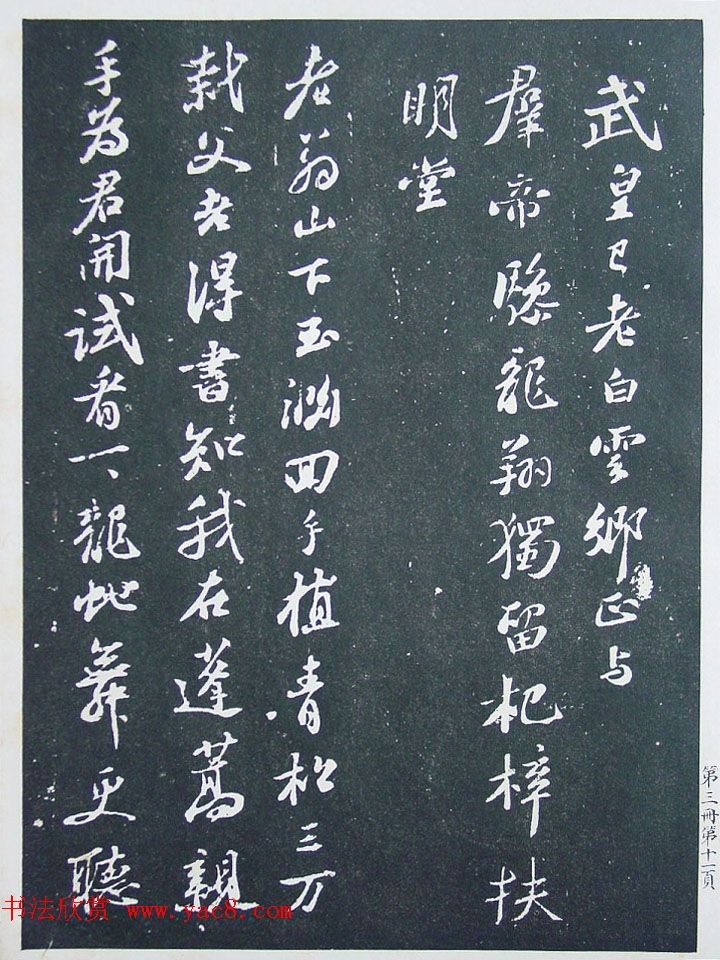 武皇已老白雲鄉正与
羣帝驂龍翔獨留杞梓扶
明堂
老翁山下玉淵回手植青松三万
栽父老得書知我在蓬蒿親
手為君開試看一一龍蛇舞更聽
第三冊第十一頁
书法欣赏 www.yac8.com